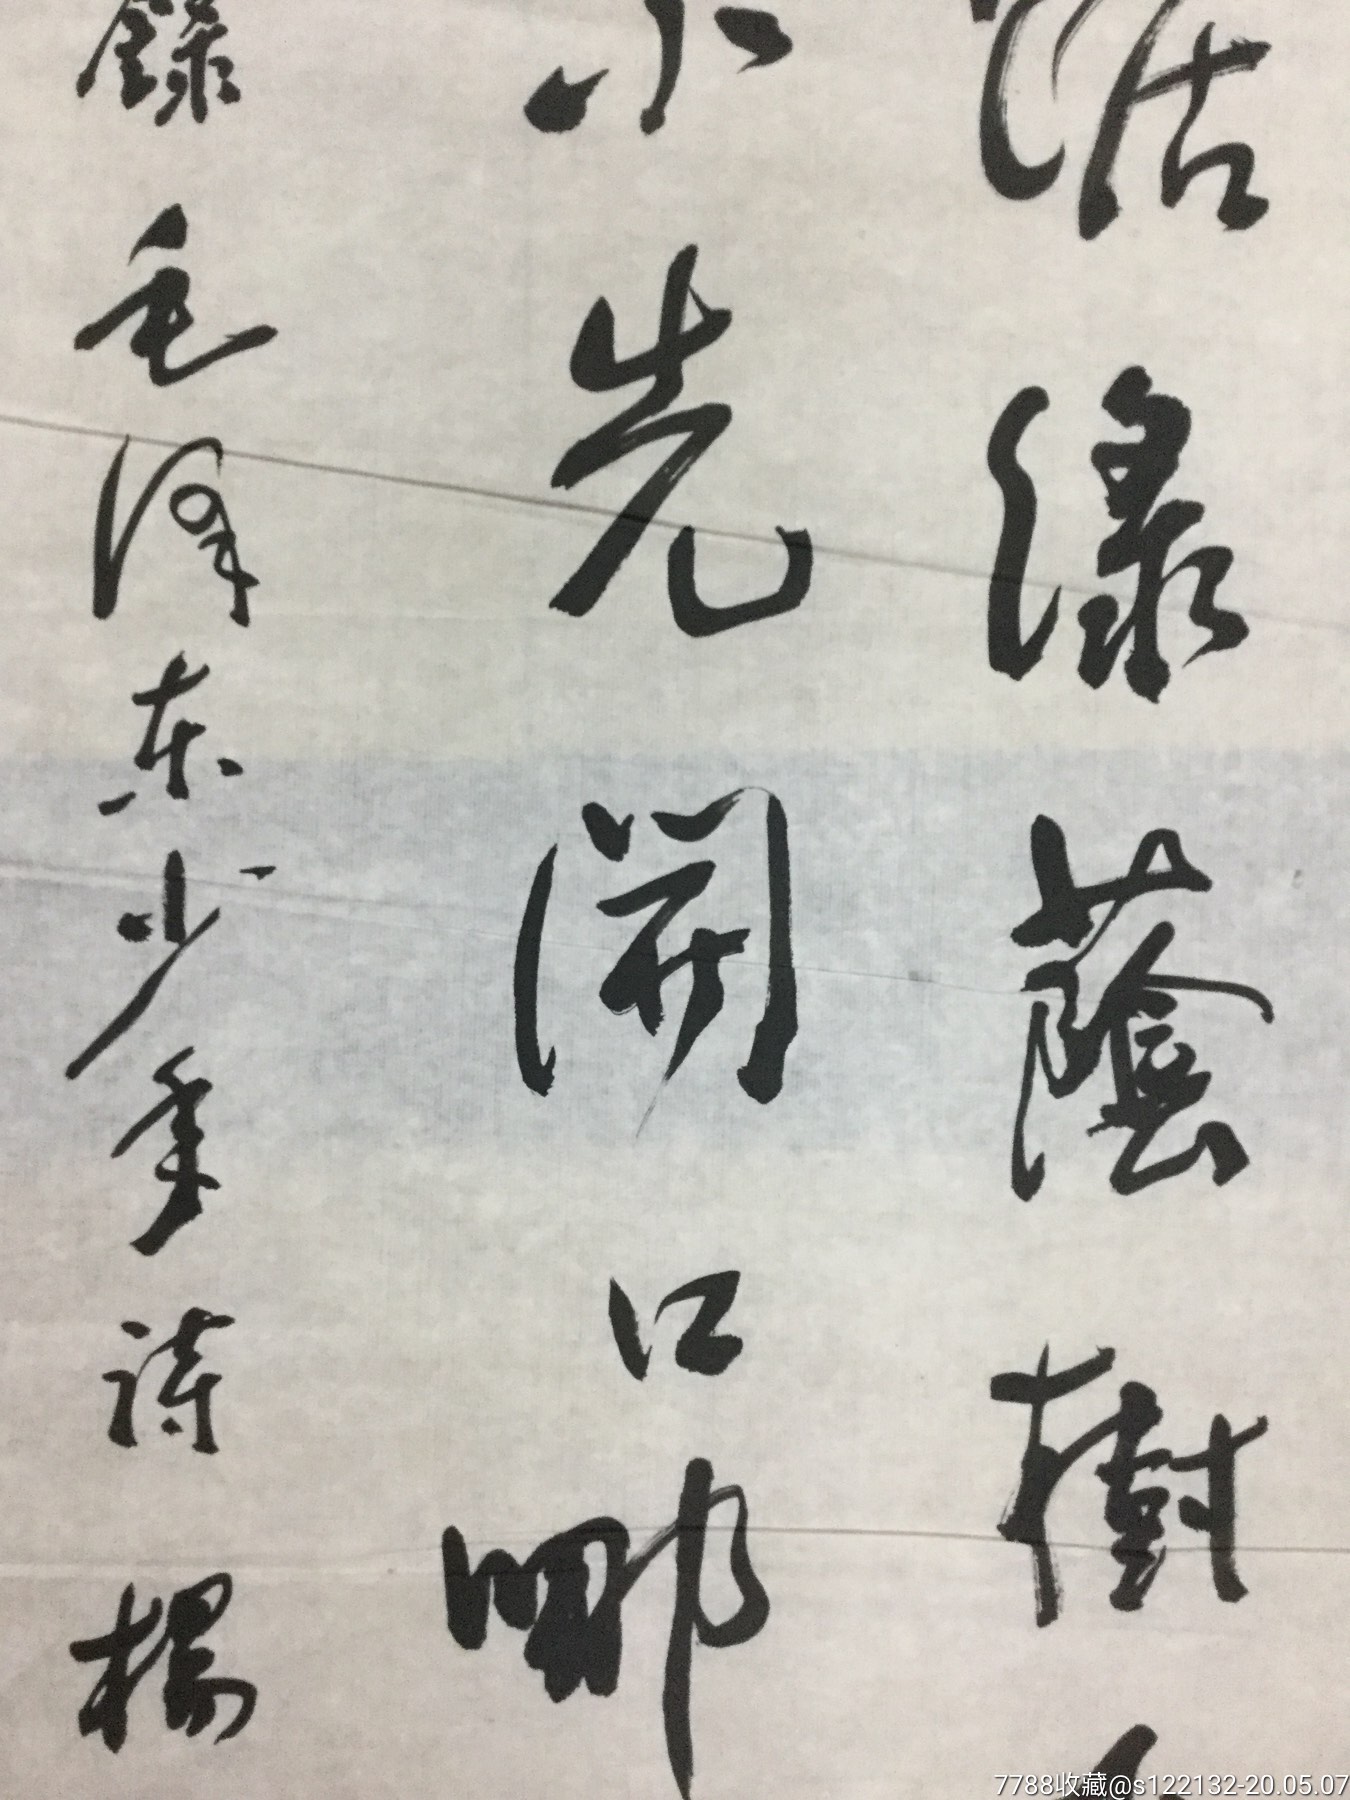 踞綠蔭樹
不先開口哪
錄毛澤东少年詩楊
7788收藏@s122132-20.05.07